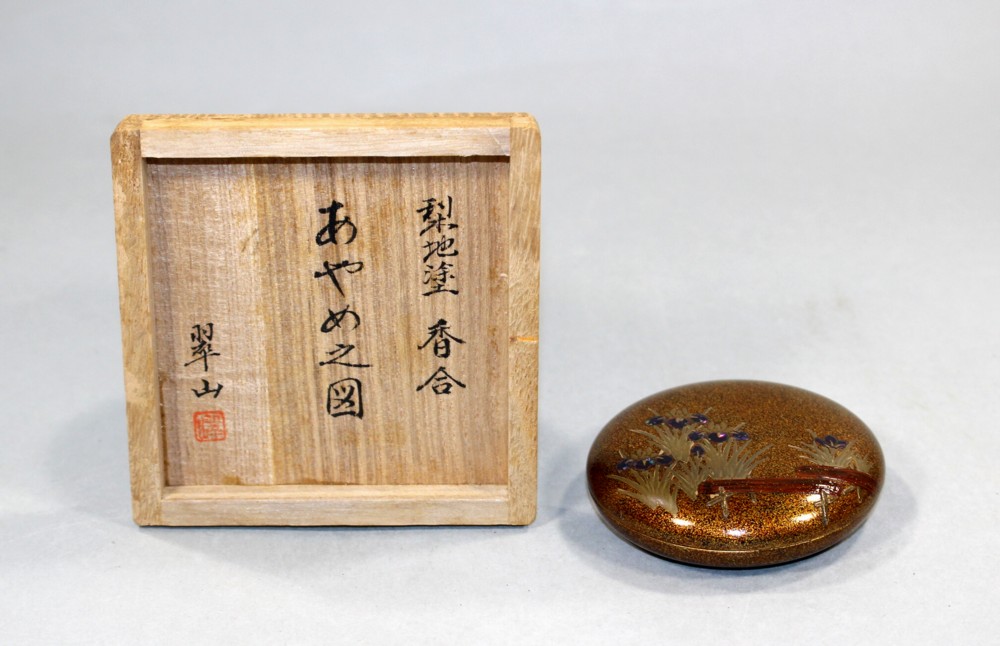 梨地塗 香合
あやめ之図
翠山